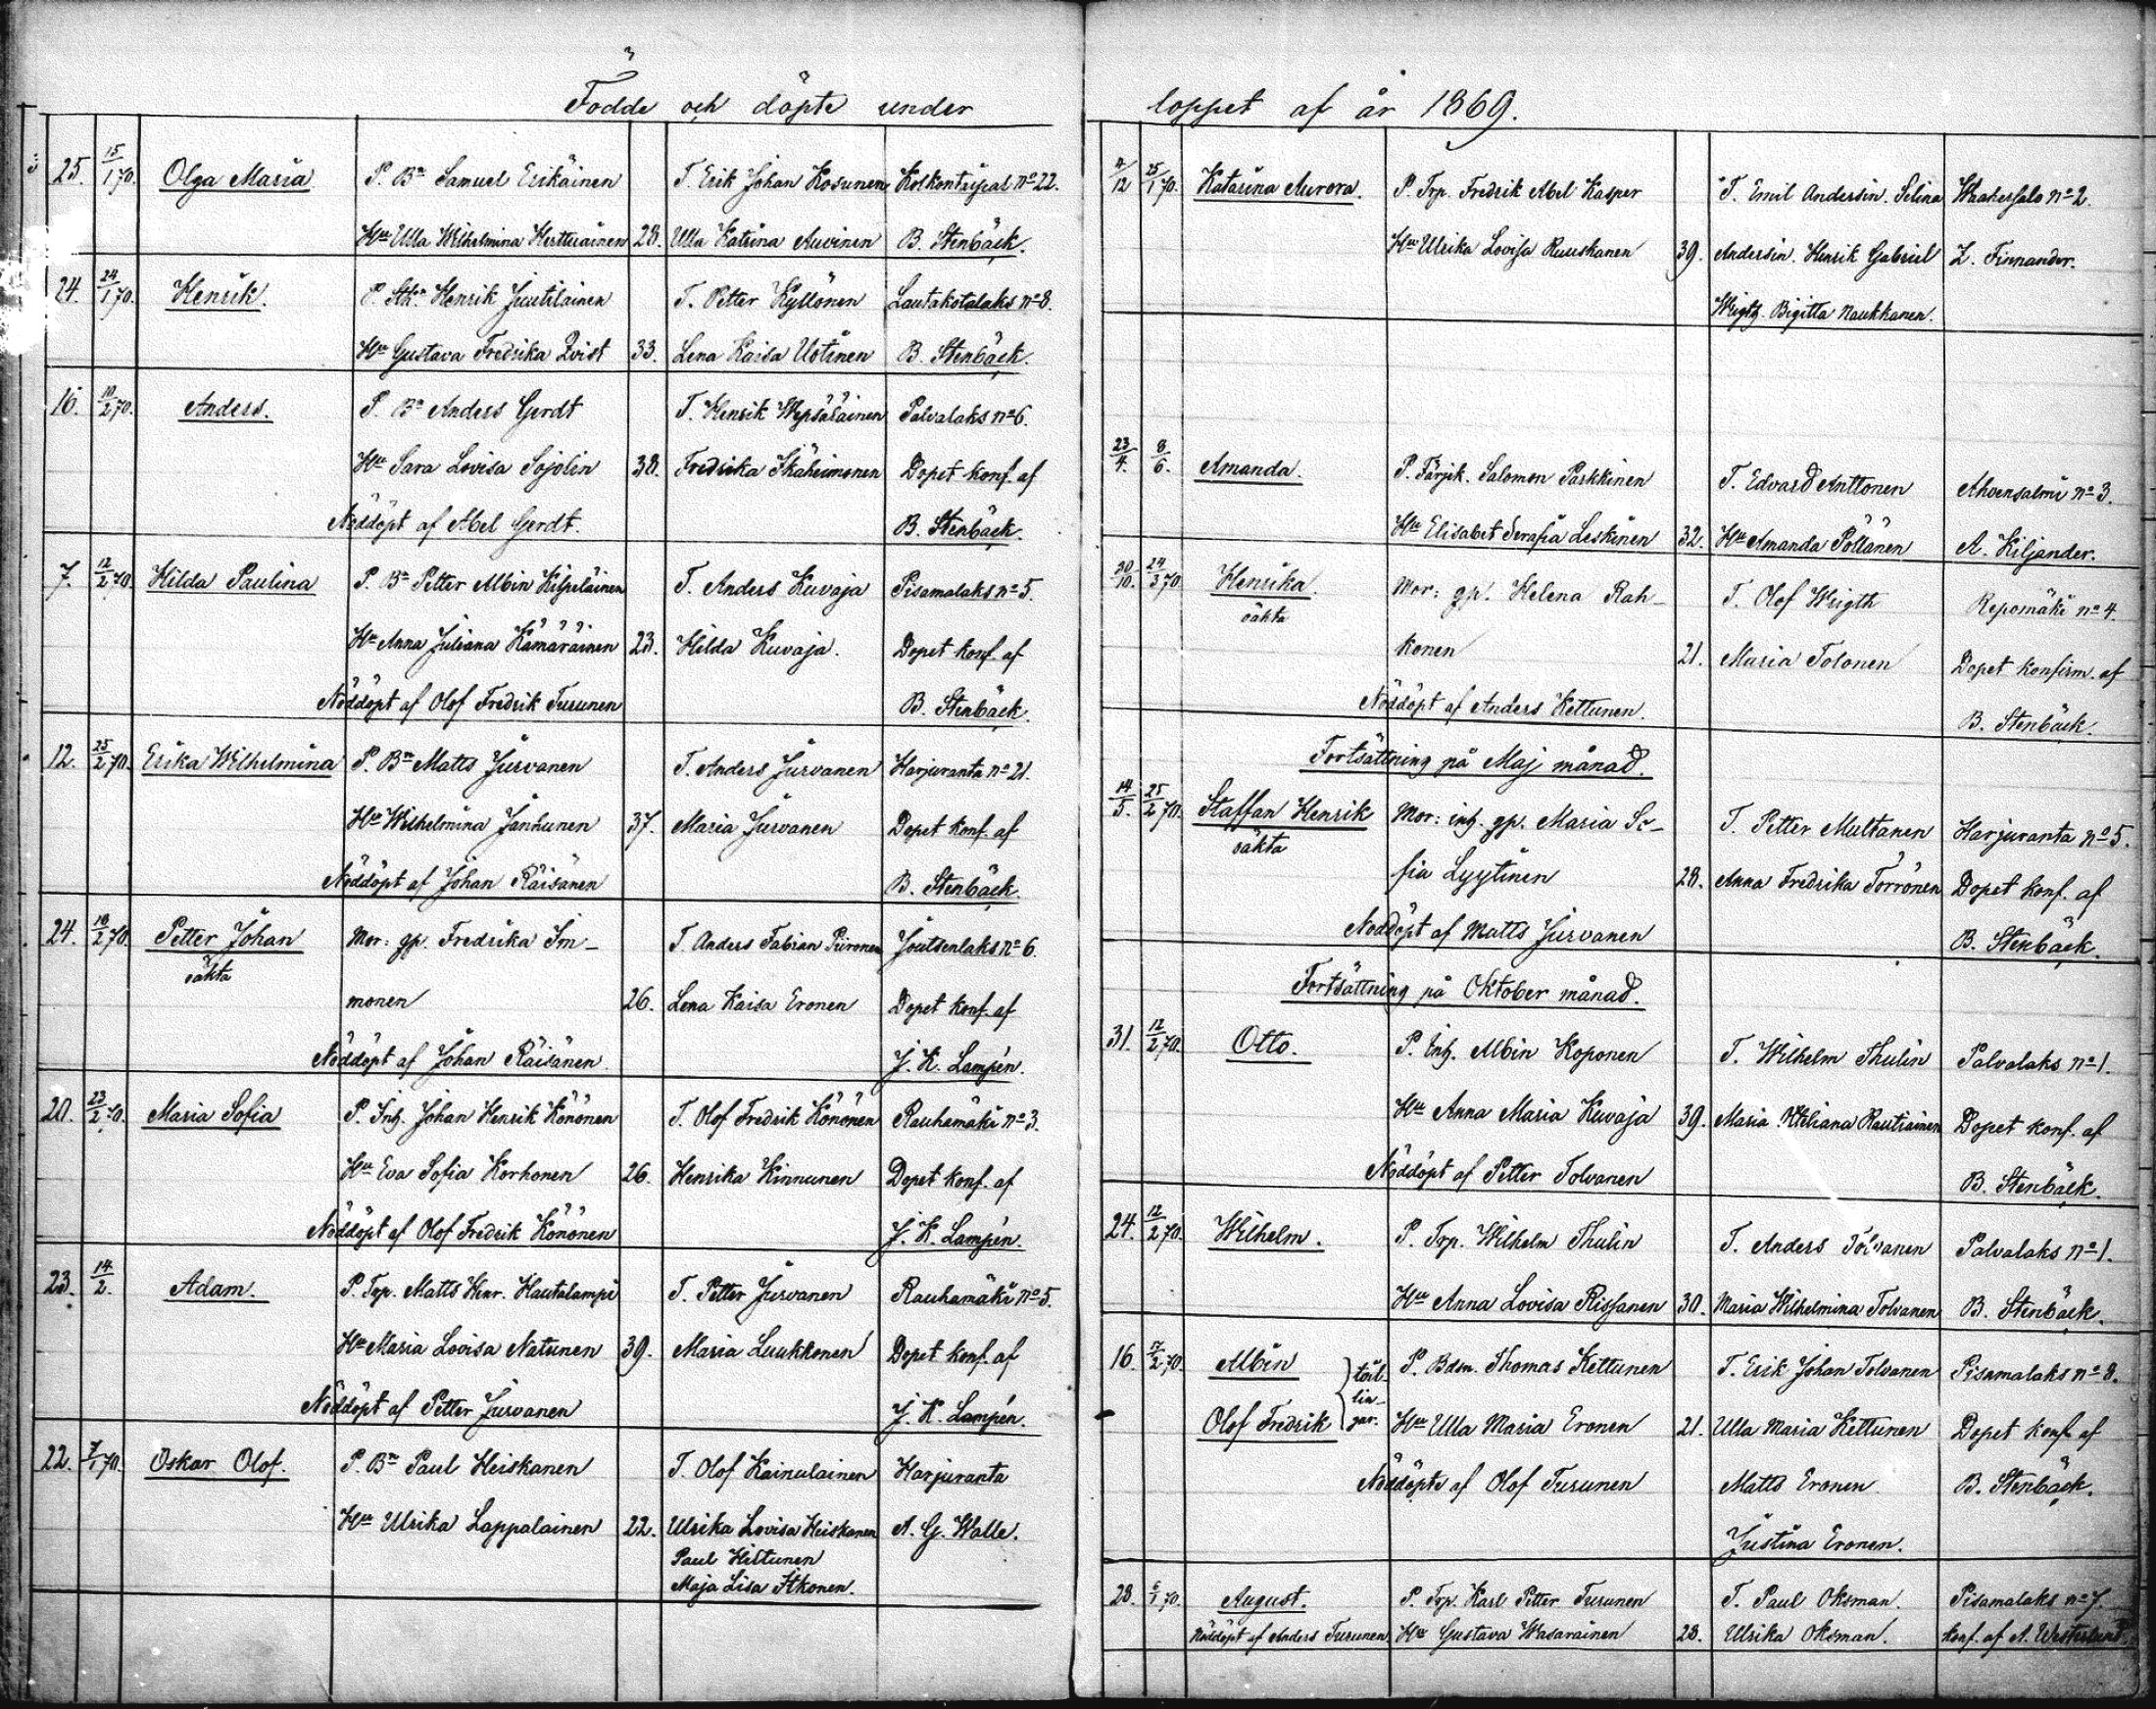 Födde och döpte under
25. 15/1 70. Olga Maria P. Bn Samuel Erikäinen T. Erik Johan Kosunen Kolkontaipal no 22.
Hu Ulla Wilhelmina Kerttuainen 28. Ulla Katrina Auvinen B. Stenbäck.
24. 24/1 70. Henrik. P. Henrik Juutilainen T. Petter Kyllönen Lautakotalaks no 8.
Hu Gustava Fredrika Qvist 33. Lena Kaisa Uotinen B. Stenbäck.
16. 10/2 70. Anders. P. Bn Anders Gerdt T. Henrik Wepsäläinen Palvalaks no 6.
Hu Sara Lovisa Sojolin 38. Fredrika Dopet konf. af
Nöddöpt af Abel Gerdt. B. Stenbäck.
7. 12/2 70. Hilda Paulina P. Bn Petter Albin Kilpeläinen T. Anders Kuvaja Pisamalaks no 5.
Hu Anna Juliana Kämäräinen 23. Hilda Kuvaja. Dopet konf. af
Nöddöpt af Olof Fredrik Turunen B. Stenbäck.
12. 25/2 70. Erika Wilhelmina P. Bn Matts Jurvanen T. Anders Jurvanen Harjuranta no 21.
Hu Wilhelmina Janhunen 37. Maria Jurvanen Dopet konf. af
Nöddöpt af Johan Räisänen B. Stenbäck.
24. 18/2 70. Petter Johan Mor: gp. Fredrika Im- T. Anders Fabian Piironen Joutsenlaks no 6.
oäkta monen 26. Lena Kaisa Eronen Dopet konf. af
Nöddöpt af Johan Räisänen. J. K. Lampén.
20. 23/2 70. Maria Sofia P. Inh. Johan Henrik Könönen T. Olof Fredrik Könönen Rauhamäki no 3.
Hu Eva Sofia Korhonen 26. Henrika Kinnunen Dopet konf. af
Nöddöpt af Olof Fredrik Könönen J. K. Lampén.
23. 14/2. Adam. P. Trp. Matts Henr. Hautalampi T. Petter Jurvanen Rauhamäki no 5.
Hu Maria Lovisa Natunen 39. Maria Luukkonen Dopet konf. af
Nöddöpt af Petter Jurvanen J. K. Lampén.
22. 7/1 70. Oskar Olof. P. Bn Paul Heiskanen T. Olof Kainulainen Harjuranta
Hu Ulrika Lappalainen 22. Ulrika Lovisa Heiskanen A. G. Walle.
Paul Hiltunen
Maja Lisa Itkonen.
loppet af år 1869.
4/12 25/1 70. Katarina Aurora. P. Trp. Fredrik Abel Kasper T. Emil Andersin. Selina Waakersalo no 2.
Hu Ulrika Lovisa Ruuskanen 39. Andersin. Henrik Gabriel Z. Finnander.
Wrigth. Bigitta Naukkanen.
23/4. 8/6. Amanda. P. Färjk. Salomon Parkkinen T. Edvard Anttonen Ahvensalmi no 3.
Hu Elisabet Serafia Leskinen 32. Hu Amanda Pöllänen A. Kiljander.
30/10. 24/3 70. Henrika. Mor: gp. Helena Rah- T. Olof Wrigth Repomäki no 4.
oäkta konen 21. Maria Tolonen Dopet konfirm. af
Nöddöpt af Anders Kettunen. B. Stenbäck.
Fortsättning på Maj månad.
14/5. 25/2 70. Staffan Henrik Mor: inh. gp. Maria So- T. Petter Multanen Harjuranta no 5.
oäkta fia Lyytinen 28. Anna Fredrika Torrönen Dopet konf. af
Nöddöpt af Matts Jurvanen B. Stenbäck.
Fortsättning på Oktober månad.
31. 12/2 70. Otto. P. Inh. Albin Koponen T. Wilhelm Thulin Palvalaks no 1.
Hu Anna Maria Kuvaja 39. Maria Rautiainen Dopet konf. af
Nöddöpt af Petter Tolvanen B. Stenbäck.
24. 12/2 70. Wilhelm. P. Trp. Wilhelm Thulin T. Anders Tolvanen Palvalaks no 1.
Hu Anna Lovisa Rissanen 30. Maria Wilhelmina Tolvanen B. Stenbäck.
16. 7/2 70. Albin tvil- P. Bdm. Thomas Kettunen T. Erik Johan Tolvanen Pisamalaks no 8.
lin-
Olof Fredrik gar. Hu Ulla Maria Eronen 21. Ulla Maria Kettunen Dopet konf. af
Nöddöpte af Olof Turunen Matts Eronen B. Stenbäck.
Justina Eronen.
28. 6/1 70. August. P. Trp. Karl Petter Turunen T. Paul Oksman. Pisamalaks no 7.
Nöddöpt af Anders Turunen Hu Gustava Wasarainen 28. Ulrika Oksman. Konf. af A. Westerlund.